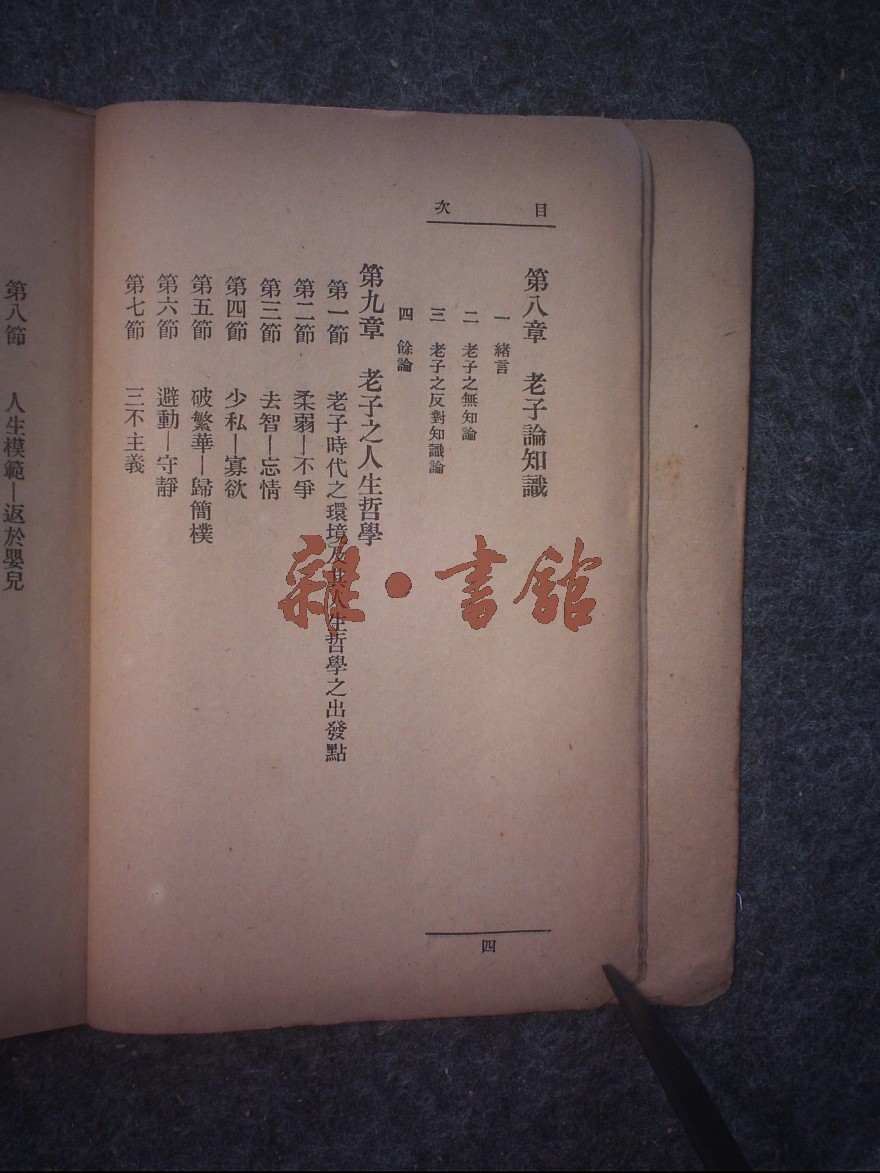 目次
第八章 老子論知識
一 緒言
二 老子之無知論
三 老子之反對知識論
四 餘論
第九章 老子之人生哲學
第一節 老子時代之環境及其人生哲學之出發點
第二節 柔弱—不爭
第三節 去智—忘情
第四節 少私—寡欲
第五節 破繁華—歸簡樸
第六節 避動—守靜
第七節 三不主義
四
第八節 人生模範—返於嬰兒
雜·書館